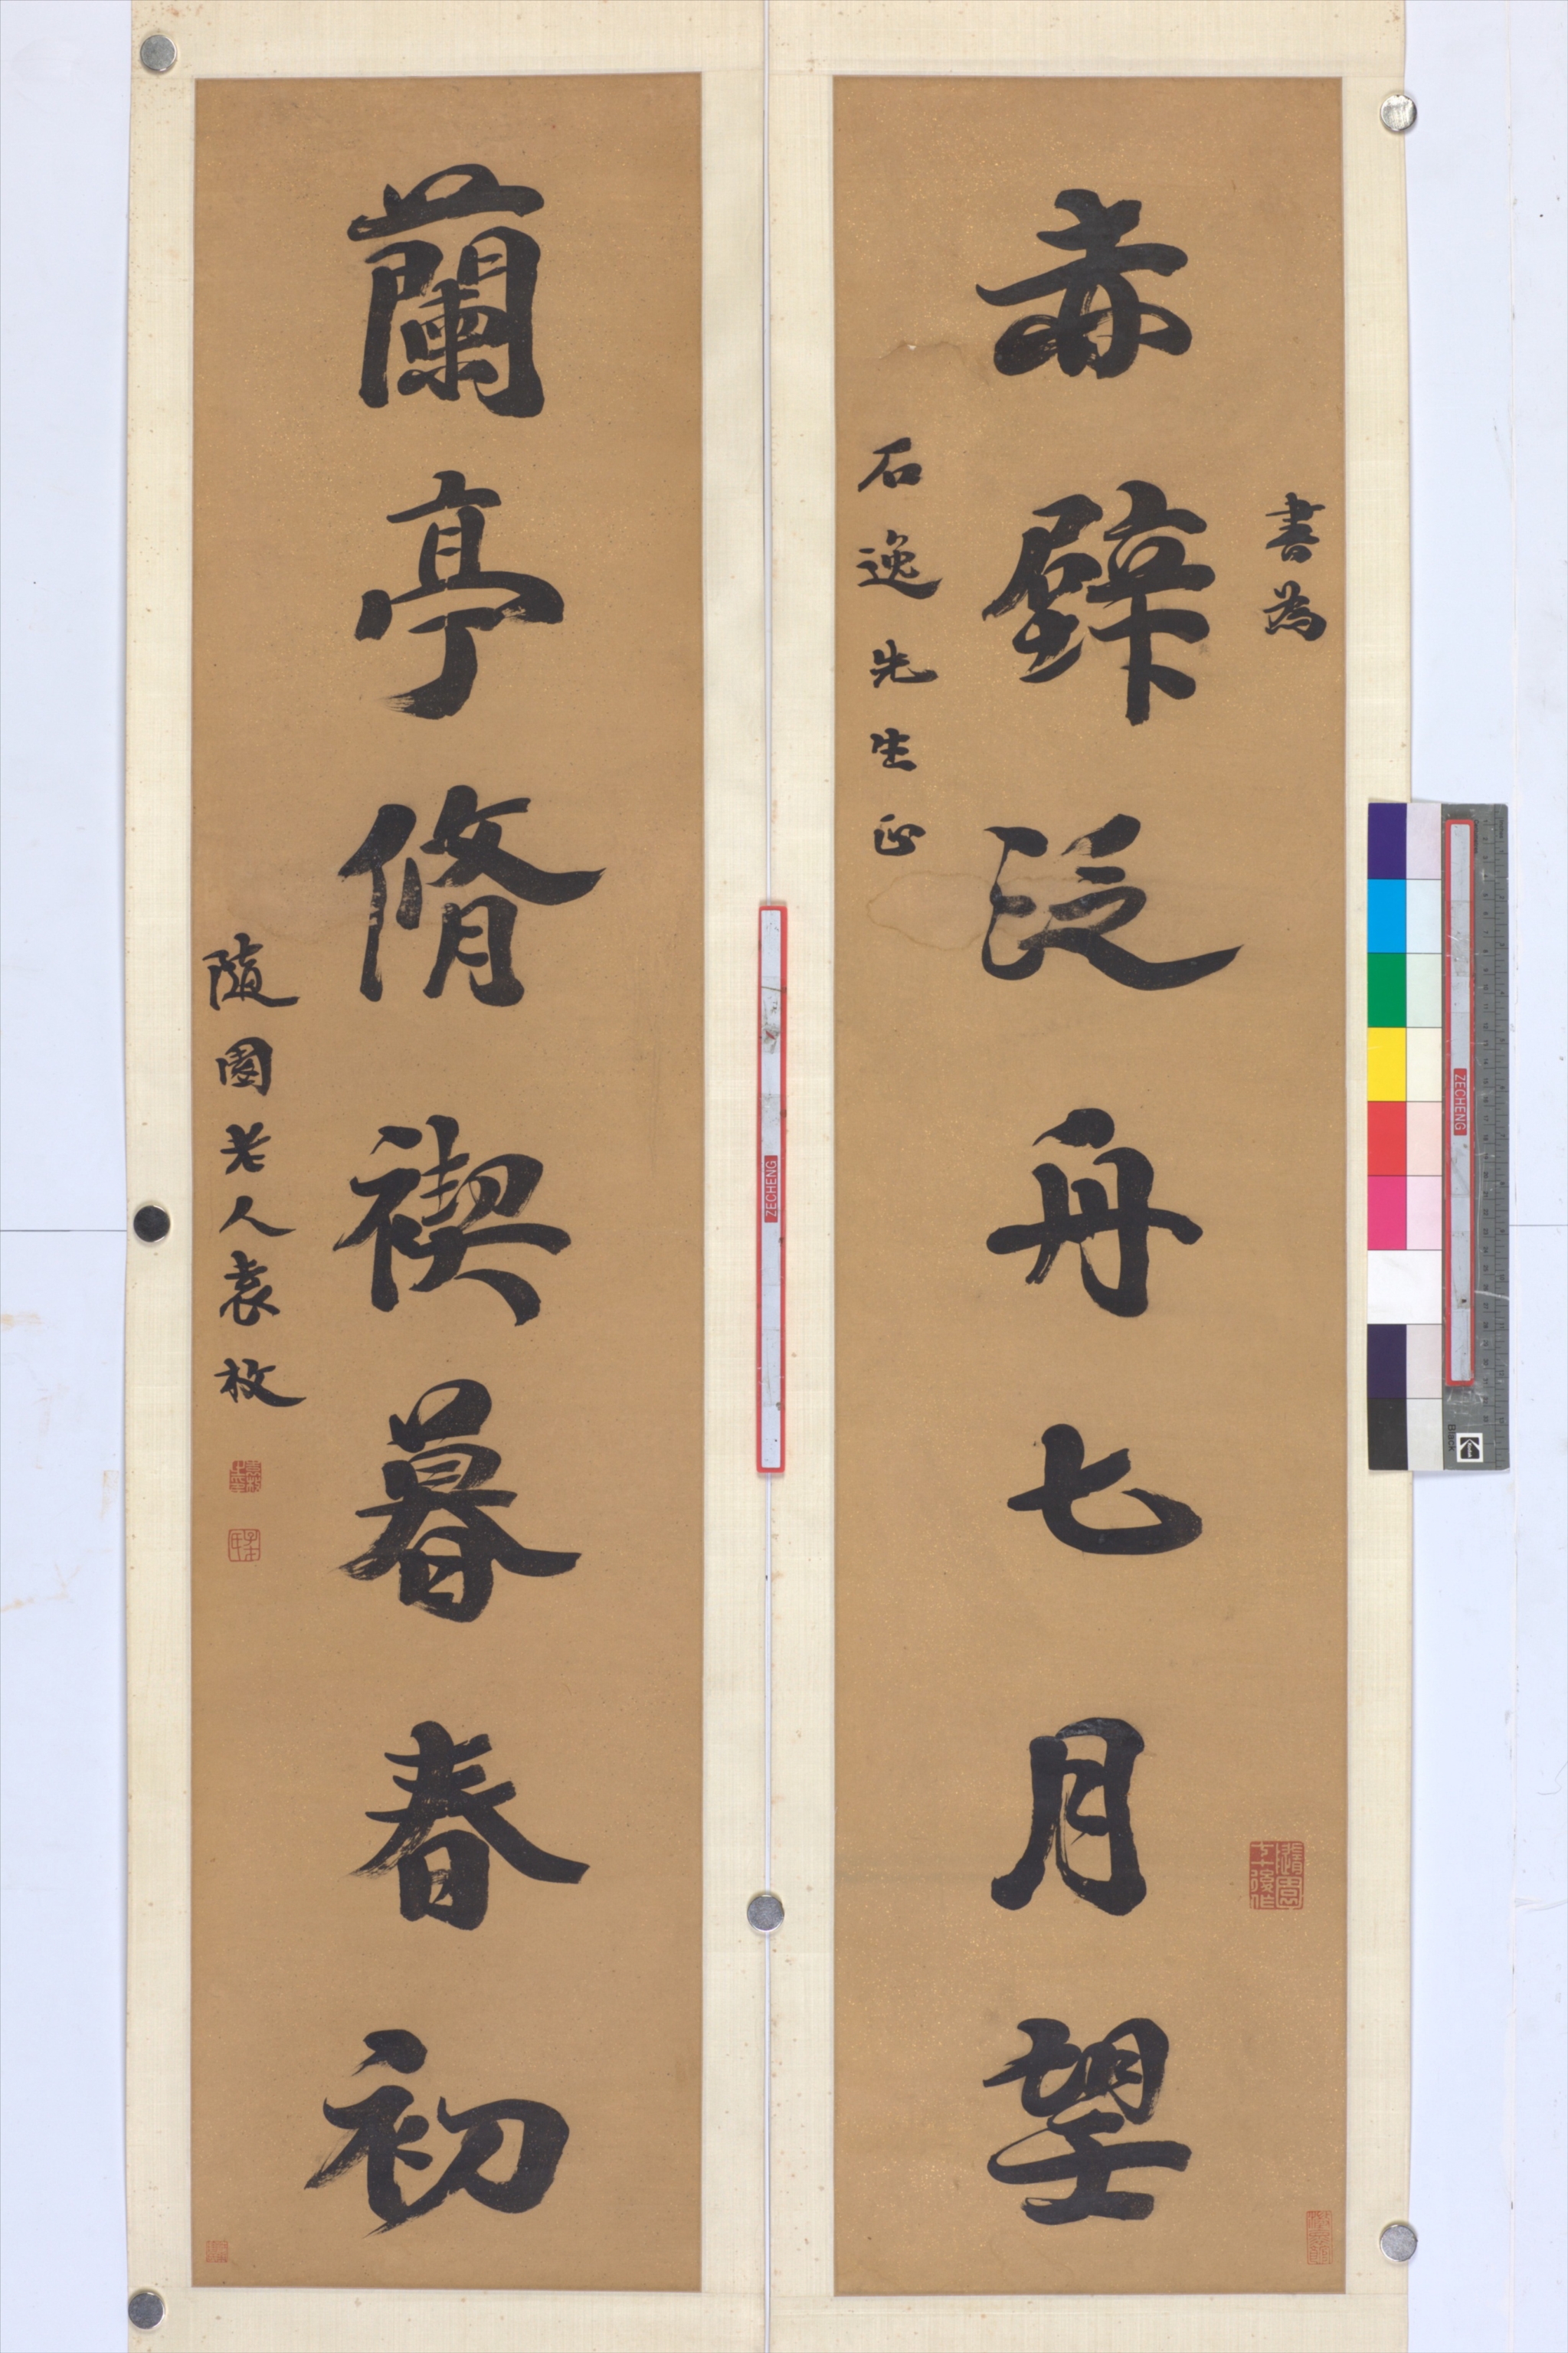 書為
赤壁泛舟七月望
石逸先生正
蘭亭脩禊暮春初
隨園老人袁枚
隨園
七十後作
ZECHENG
ZECHENG
Black
Kodak